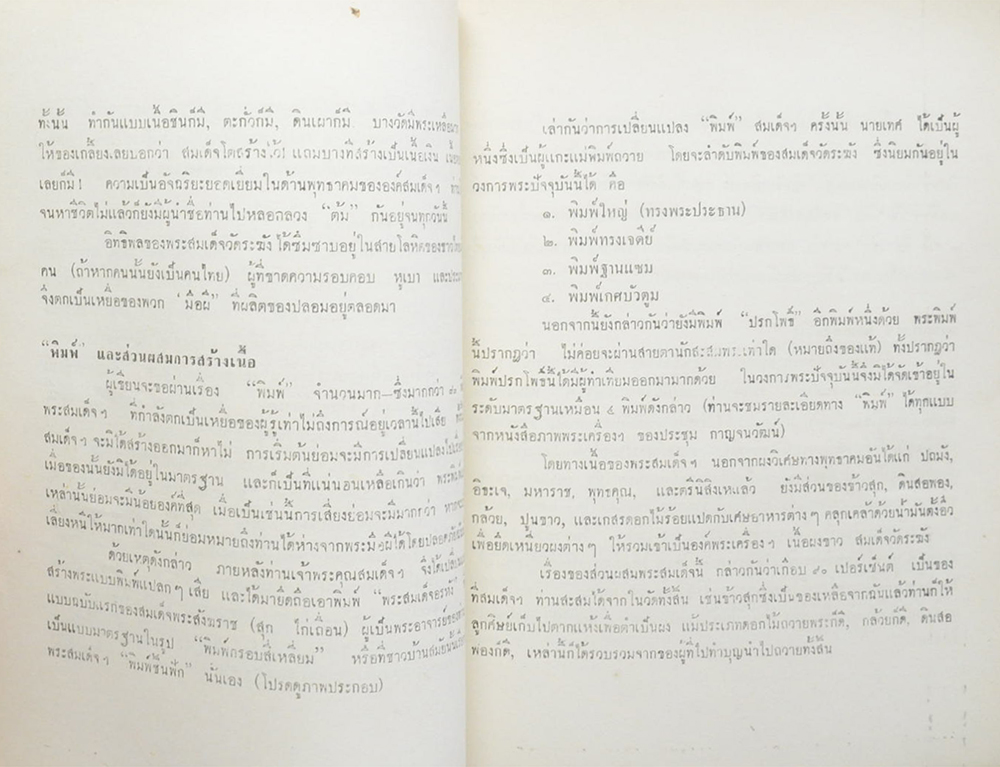 ทั้งนั้น ทำกันแบบเนื้อชินก็มี, ตะกั่วก็มี, ดินเผาก็มี. บางวัดมีพระเหลือมาก
ให้ของเกลี้ยงเลยบอกว่า สมเด็จโตสร้างไว้! แถมบางที่สร้างเป็นเนื้อเงิน
เลยก็มี! ความเป็นอัจฉริยะยอดเยี่ยมในด้านพุทธาคมขององค์สมเด็จฯ
จนหาชีวิตไม่แล้วก็ยังมีผู้นำชื่อท่านไปหลอกลวง “ต้ม” กันอยู่จนทุกวันนี้
อิทธิพลของพระสมเด็จวัดระฆังได้ซึมซาบอยู่ในสายโลหิตของ
คน (ถ้าหากคนนั้นยังเป็นคนไทย) ผู้ที่ขาดความรอบคอบ หูเบา และ
จึงตกเป็นเหยื่อของพวก “มือผี” ที่ผลิตของปลอมอยู่ตลอดมา
“พิมพ์” และส่วนผสมการสร้างเนื้อ
ผู้เขียนจะขอผ่านเรื่อง “พิมพ์” จำนวนมาก—ซึ่งมากกว่า
พระสมเด็จฯ ที่กำลังตกเป็นเหยื่อของผู้รู้เท่าไม่ถึงการณ์อยู่เวลานี้ไปเสีย
สมเด็จฯ จะมิได้สร้างออกมาก็หาไม่ การเริ่มต้นย่อมจะมีการเปลี่ยนแปลงไป
เมื่อของนั้นยังมิได้อยู่ในมาตรฐาน และก็เป็นที่แน่นอนเหลือเกินว่า
เหล่านั้นย่อมจะมีน้อยองค์ที่สุด เมื่อเป็นเช่นนี้การเสี่ยงย่อมจะมีมากกว่า
เลี่ยงหนีให้มากเท่าใดนั้นก็ย่อมหมายถึงท่านได้ห่างจากพระมือผีได้โดยปลอดภัย
ด้วยเหตุดังกล่าว ภายหลังท่านเจ้าพระคุณสมเด็จฯ จึงได้
สร้างพระแบบพิมพ์แปลกๆ เสีย และได้มายึดถือเอาพิมพ์ “พระสมเด็จอรหัง”
แบบฉบับแรกของสมเด็จพระสังฆราช (สุก ไก่เถื่อน) ผู้เป็นพระอาจารย์
เป็นแบบมาตรฐานในรูป “พิมพ์กรอบสี่เหลี่ยม” หรือที่ชาวบ้านสมัยนั้น
พระสมเด็จฯ “พิมพ์ชิ้นฟัก” นั่นเอง (โปรดดูภาพประกอบ)
เล่ากันว่าการเปลี่ยนแปลง “พิมพ์” สมเด็จฯ ครั้งนั้น นายเทศ ได้เป็นผู้
หนึ่งซึ่งเป็นผู้แกะแม่พิมพ์ถวาย โดยจะลำดับพิมพ์ของสมเด็จวัดระฆัง ซึ่งนิยมกันอยู่ใน
วงการพระปัจจุบันนี้ได้ คือ
๑. พิมพ์ใหญ่ (ทรงพระประธาน)
๒. พิมพ์ทรงเจดีย์
๓. พิมพ์ฐานแซม
๔. พิมพ์เกศบัวตูม
นอกจากนี้ยังกล่าวกันว่ายังมีพิมพ์ “ปรกโพธิ์” อีกพิมพ์หนึ่งด้วย พระพิมพ์
นี้ปรากฏว่า ไม่ค่อยจะผ่านสายตานักสะสมพระเท่าใด (หมายถึงของแท้) ทั้งปรากฏว่า
พิมพ์ปรกโพธิ์นี้ได้มีผู้ทำเทียมออกมามากด้วย ในวงการพระปัจจุบันนี้จึงมิได้จัดเข้าอยู่ใน
ระดับมาตรฐานเหมือน ๔ พิมพ์ดังกล่าว (ท่านจะชมรายละเอียดทาง “พิมพ์” ได้ทุกแบบ
จากหนังสือภาพพระเครื่องฯ ของประชุม กาญจนวัฒน์)
โดยทางเนื้อของพระสมเด็จฯ นอกจากผงวิเศษทางพุทธาคมอันได้แก่ ปถมัง,
อิธะเจ, มหาราช, พุทธคุณ, และตรีนิสิงเหแล้ว ยังมีส่วนของข้าวสุก, ดินสอพอง,
กล้วย, ปูนขาว, และเกสรดอกไม้ร้อยแปดกับเศษอาหารต่างๆ คลุกเคล้าด้วยน้ำมันตั้งอิ๊ว
เพื่อยึดเหนี่ยวผงต่างๆ ให้รวมเข้าเป็นองค์พระเครื่องฯ เนื้อผงขาว สมเด็จวัดระฆัง
เรื่องของส่วนผสมพระสมเด็จนี้ กล่าวกันว่าเกือบ ๙๐ เปอร์เซ็นต์ เป็นของ
ที่สมเด็จฯ ท่านสะสมได้จากในวัดทั้งสิ้น เช่นข้าวสุกซึ่งเป็นของเหลือจากฉันแล้วท่านก็ให้
ลูกศิษย์เก็บไปตากแห้งเพื่อตำเป็นผง แม้ประเภทดอกไม้ถวายพระก็ดี, กล้วยก็ดี, ดินสอ
พองก็ดี, เหล่านี้ก็ได้รวบรวมจากของผู้ที่ไปทำบุญนำไปถวายทั้งสิ้น